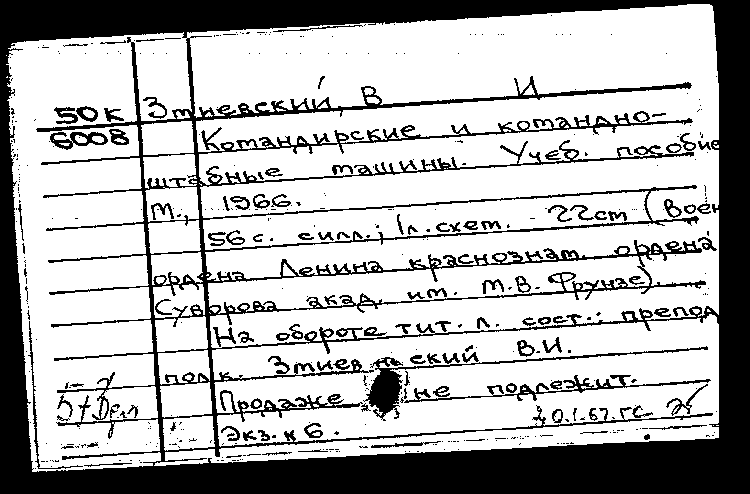 50К Змиевский, В И
6008 Командирские и командно-
штабные машины. Учеб. пособие
М., 1966.
56 с. с илл.; 1 л. схем. 22 см (Воен
ордена Ленина краснознам. ордена
Суворова акад. им. М.В. Фрунзе).
На обороте тит. л. сост.: препод
полк. Змиевский В.И.
Продаже не подлежит.
Экз. к б.